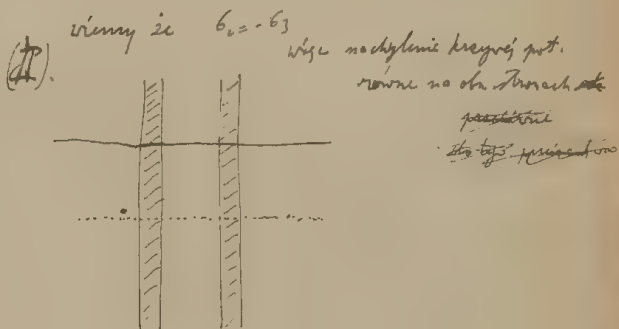 wiemy że σ₂ = -σ₃
(A).
więc nachylenie krzywej pot.
równe na obu stronach